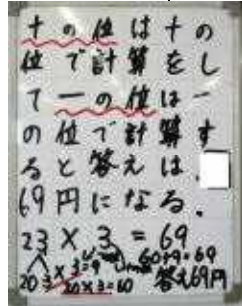 十の位は十の
位で計算をし
て一の位は一
の位で計算す
ると答えは、
69円になる。
23 × 3 = 69
3×3=9 60+9=69
20 3 20×3=60 答え69円